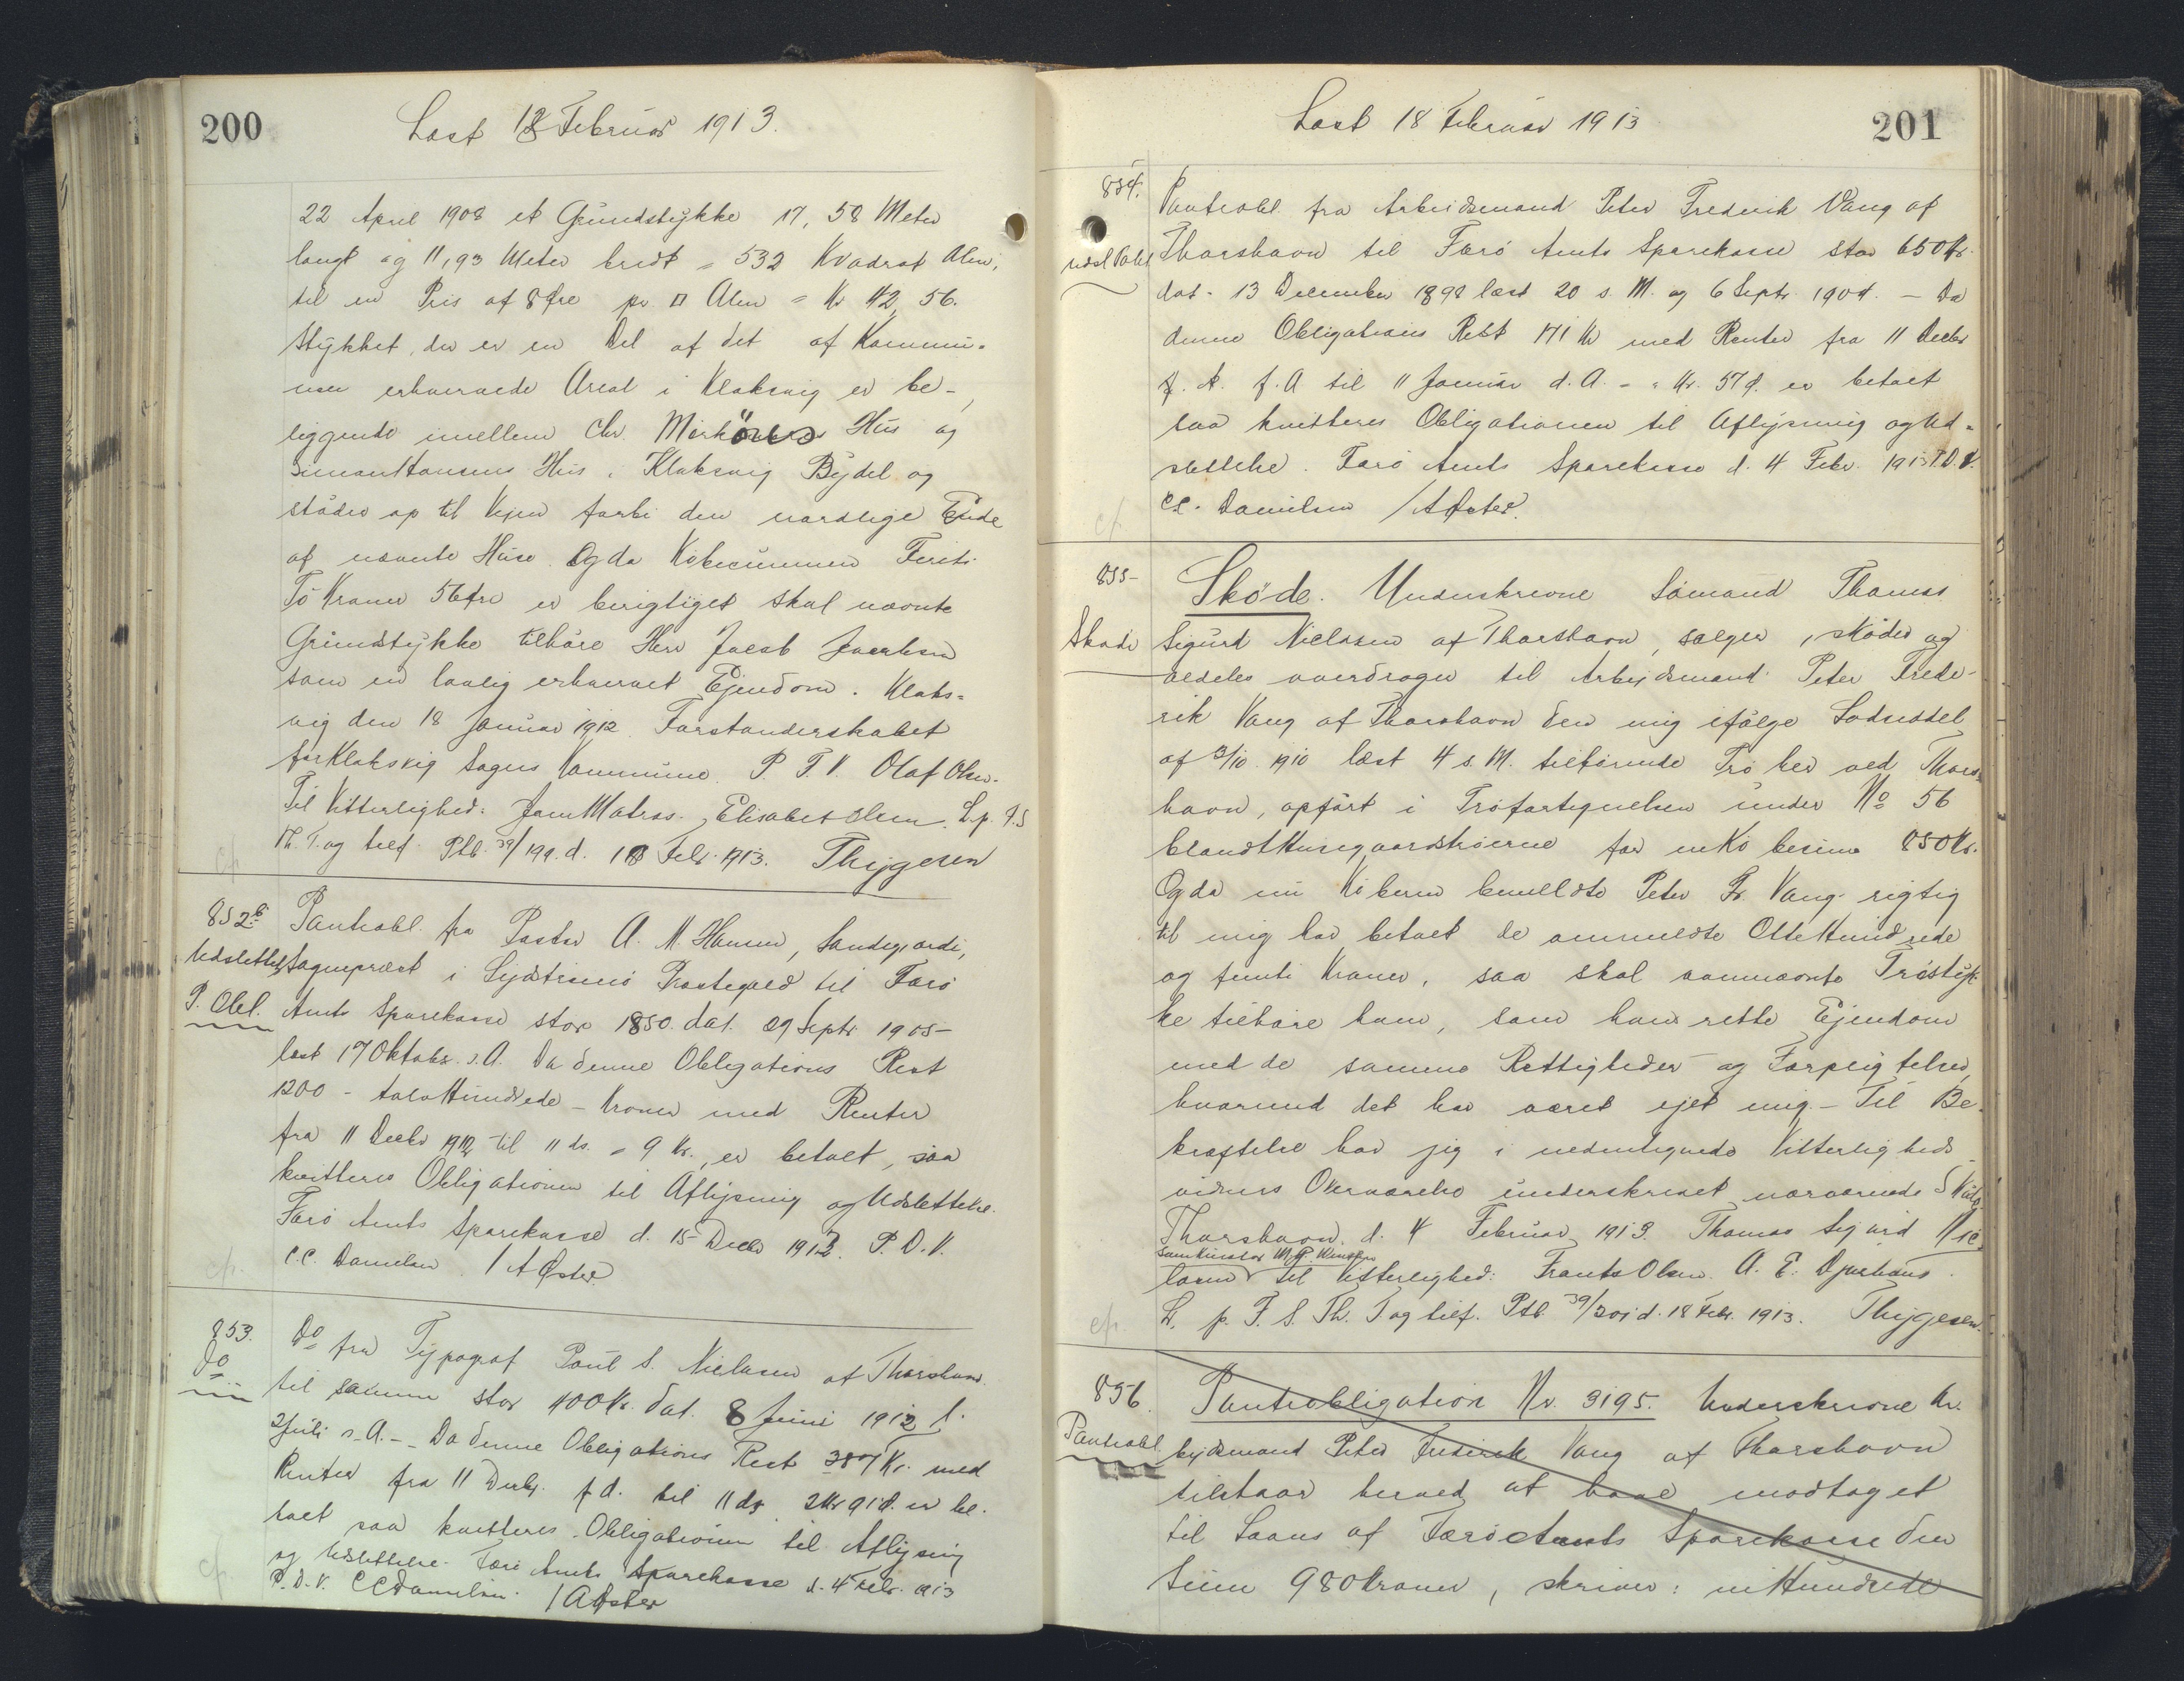 200
Læst 18 Februar 1913.
22 April 1908 et Grundstykke 17,58 Meter
langt og 11,93 Meter bredt = 532 Kvadrat Alen,
til en Pris af 8 Øre pr. □ Alen = Kr 42,56.
Stykket, der er en Del af det af Kommu-
nen erhvervede Areal i Klaksvig er be-
liggende imellem Chr. Mørköres Hus og
Simon Hansens Hus i Klaksvig Bydel og
støder op til Vejen forbi den nordlige Ende
af nævnte Huse. Og da Købesummen Firti-
To Kroner 56 Øre er berigtiget skal nævnte
Grundstykke tilhøre Herr Jacob Jacobsen
som en lovlig erhvervet Ejendom. Klaks-
vig den 18 Januar 1912. Forstanderskabet
for Klaksvig Sogns Kommune. P. F. V. Olaf Olsen.
Til Vitterlighed: Elisabet Olsen. L. p. F. S
Th. T. og tilf. Ptb. 39/199. d. 18 Febr. 1913. Thygesen
cf.
852b
Udslettels
P. Obl.
Panteobl. fra Pastor A. M. Hansen, Sandegjærde,
Sognepræst i Præstegæld til Færø
Amts Sparekasse stor 1850. dat. 29 Septr 1905-
læst 17 Oktobr. s. A. Da denne Obligations Rest
1200 - tolv Hundrede - Kroner med Renter
fra 11 Decbr 1912 til 11 ds. = 9 Kr., er betalt, saa
kvitteres Obligationen til Aflysning og Udslettelse.
Færø Amts Sparekasse d. 15 Decbr 1912. P. D. V.
C.C. Danielsen / A Øster
cf.
853.
Do
Do fra Typograf Poul S. Nielsen af Thorshavn
til samme stor 400 Kr. dat. 8 Juni 1912 l.
2 Juli s. A. - Da denne Obligations Rest 387 Kr. med
Renter fra 11 Decbr. f. A. til 11 ds. 2 Kr 91 Ø. er be-
talt saa kvitteres Obligationen til Aflysning
og Udslettelse. Færø Amts Sparekasse d. 4 Febr. 1913
P. D. V. CC Danielsen / A Øster
cf
Læst 18 Februar 1913
201
854.
Udsl Pobl
Panteobl. fra Arbeidsmand Peter Frederik Vang af
Thorshavn til Færø Amts Sparekasse stor 650 Kr.
dat. 13 December 1898 læst 20 s. M. og 6 Septr. 1904. - Da
denne Obligations Rest 171 Kr med Renter fra 11 Decbr
f. A. til 11 Januar d. A. = Kr. 57 Ø. er betalt
saa kvitteres Obligationen til Aflysning og Ud-
slettelse. Færø Amts Sparekasse d. 4 Febr. 1913 P. D. V.
CC. Danielsen / A Øster.
cf
855-
Skøde
Skøde. Underskrevne Sømand Thomas
Sigurd Nielsen af Thorshavn, sælger, skøder og
aldeles overdrager til Arbejdsmand Peter Frede-
rik Vang af Thorshavn den mig ifølge Lodseddel
af 3/10. 1910 læst 4 s. M. tilhørende Trø her ved Thors-
havn, opført i Trøfortegnelsen under No 56
blandt Husegaardstrøerne for en Købesum 850 Kr.
Og da nu Køberen bemeldte Peter Fr. Vang rigtig
til mig har betalt de ommeldte Otte Hundrede
og femti Kroner, saa skal ovennævnte Trøstyk-
ke tilhøre ham, som hans rette Ejendom
med de samme Rettigheder og Forpligtelser,
hvormed det har været ejet mig. - Til Be-
kræftelse har jeg i nedentegnede Vitterligheds
vidners Overværelse underskrevet nærværende Skøde
Thorshavn d. 4 Februar 1913. Thomas Sigurd Nie-
lasen Til Vitterlighed: Frants Olsen. A. E. Djurhuus.
L. p. F. S. Th. T og tilf. Ptb. 39/201 d. 18 Febr. 1913. Thygesen.
cf.
856.
Panteobl.
Panteobligation Nr. 3195. Underskrevne Ar-
bejdsmand Peter Frederik Vang af Thorshavn
tilstaar herved at have modtaget
til Laans af Færø Amts Sparekasse den
Sum 980 Kroner, skriver: ni Hundrede